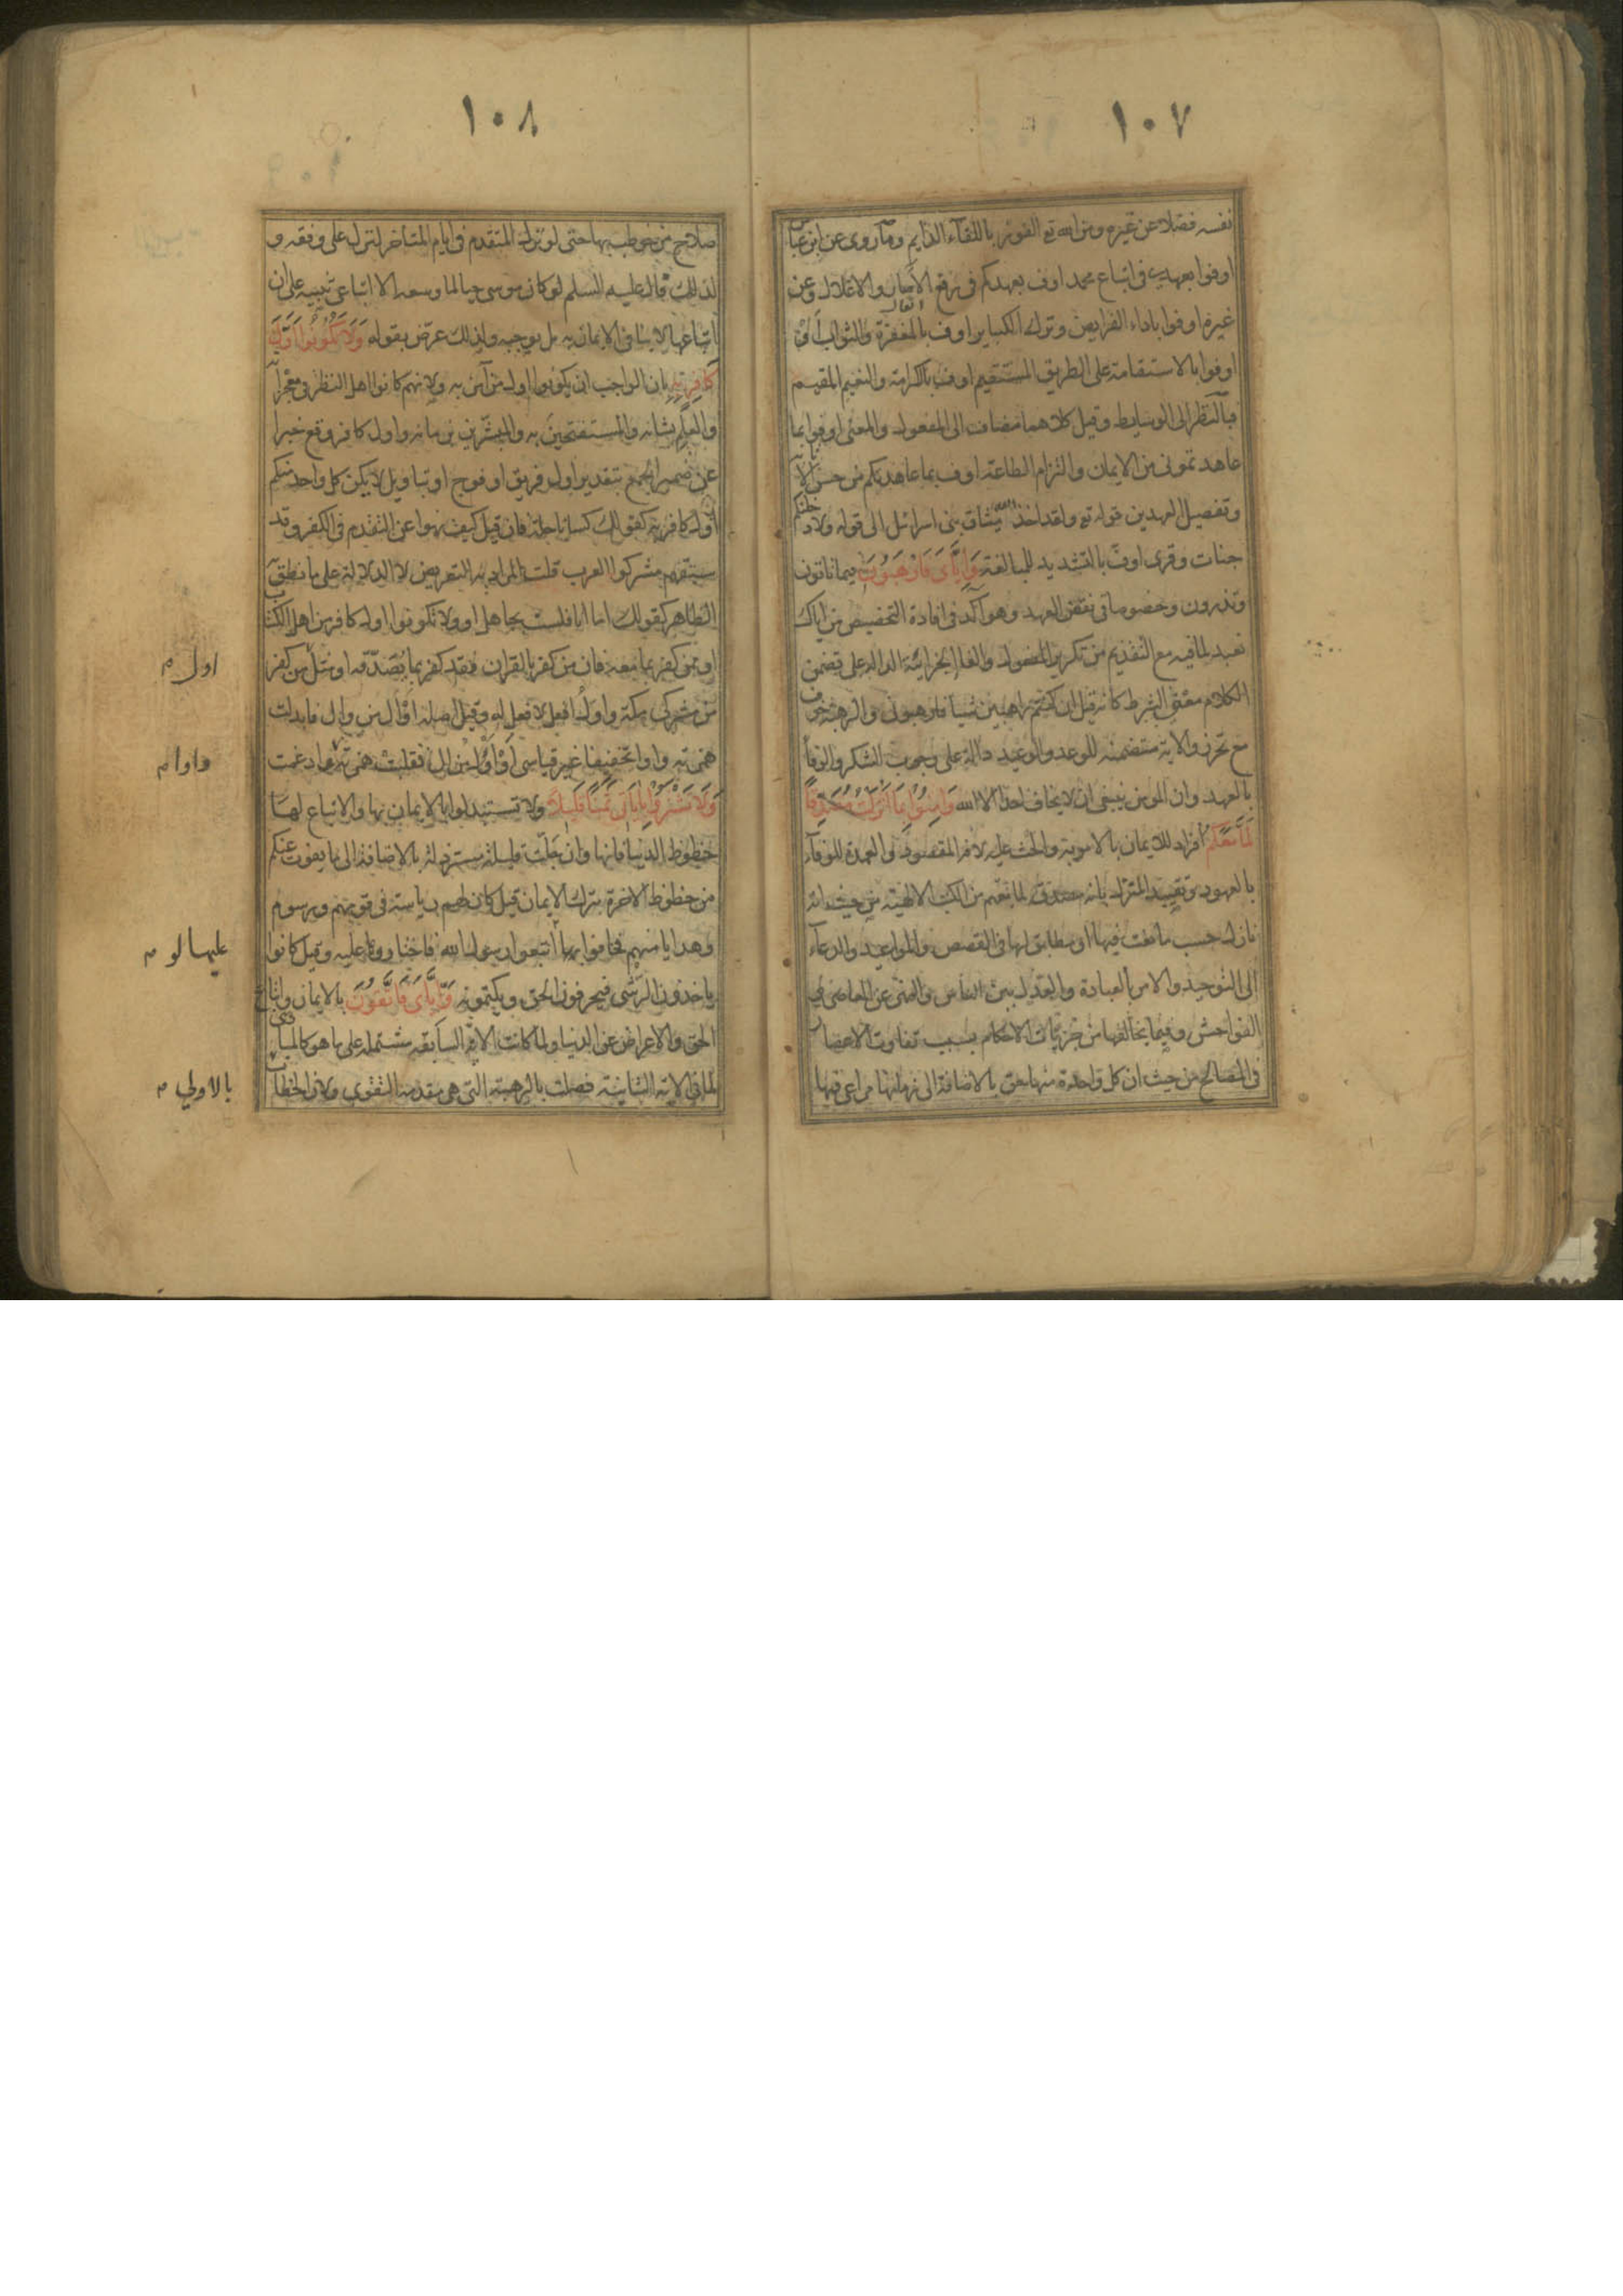 ١٠٧
نفسه فضلا عن غيره ومن الله تع الفوز باللقاء الدايم وما روى عن ابن عباس
اوفوا بعهدي في اتباع محمد اوف بعهدكم في رفع الآصار والاغلال وعن
غيره اوفوا باداء الفرايض وترك الكباير اوف بالمغفرة والثواب او
اوفوا بالاستقامة على الطريق المستقيم اوف بالكرامة والنعيم المقيم
فبالنظر الى الوسايط وقيل كلاهما مضاف الى المفعول والمعنى اوفوا بما
عاهدتموني من الايمان والتزام الطاعة اوف بما عاهدتكم من حسن الاثابة
وتفصيل العهدين قوله تع ولقد اخذ الله ميثاق بني اسرائل الى قوله ولادخلنكم
جنات وقرى اوف بالتشديد للمبالغة وَاِيَّايَ فَارْهَبُونِ فيما تاتون
وتذرون وخصوصا في نقض العهد وهو آكد في افادة التخصيص من اياك
نعبد لما فيه مع التقديم من تكرير المفعول والفا الجزائية الدالة على تضمن
الكلام معنى الشرط كانه قيل ان كنتم راهبين شيا فارهبون والرهبة خوف
مع تحرز والاية متضمنة للوعد والوعيد دالة على وجوب الشكر والوفا
بالعهد وان المومن ينبغي ان لا يخاف احدا الا الله وَآمِنُوا بِمَا اَنْزَلْتُ مُصَدِّقًا
لِمَا مَعَكُمْ افراد للايمان بالامر به والحث عليه لانه المقصود والعمدة للوفاء
بالعهود وتقييد المنزل بانه مصدق لما معهم من الكتب الالهية من حيث انه
نازل حسب ما نعت فيها او مطابق لها في القصص والمواعيد والدعاء
الى التوحيد والامر بالعبادة والعدل بين الناس والنهي عن المعاصي
الفواحش وفيما يخالفها من جزئيات الاحكام بسبب تفاوت الاعصار
في المصالح من حيث ان كل واحدة منها حق بالاضافة الى زمانها مراعى فيها
١٠٨
صلاح من خوطب بها حتى لو نزل المتقدم في ايام المتاخر لنزل على وفقه و
لذلك قال عليه السلم لو كان موسى حيا لما وسعه الا اتباعي تنبيه على ان
اتباعها لا ينافي الايمان به بل يوجبه ولذلك عرض بقوله وَلَا تَكُونُوا اَوَّلَ
كَافِرٍ بِهِ بان الواجب ان يكونوا اول من آمن به ولانهم كانوا اهل النظر في معجزاته
والعلم بشانه والمستفتحين به والمبشرين بزمانه واول كافر وقع خبرا
عن ضمير الجمع بتقدير اول فريق او فوج او بتاويل لا يكن كل واحد منكم
اول كافر به كقولك كسانا حلة فان قيل كيف نهوا عن التقدم في الكفر وقد
سبقهم مشركوا العرب قلت المراد به التعريض لا الدلالة على ما نطق به
الظاهر كقولك اما انا فلست بجاهل او ولا تكونوا اول كافر من اهل الكتاب
او ممن كفر بما معه فان من كفر بالقران فقد كفر بما يصدقه او مثل من كفر
من مشركي مكة واول افعل لا فعل له وقيل اصله اوأل من وأل فابدلت
همزته واوا تخفيفا غير قياسي او أأول من آل فقلبت همزته وادغمت
وَلَا تَشْتَرُوا بِآيَاتِي ثَمَنًا قَلِيلًا ولا تستبدلوا بالايمان بها والاتباع لها
حظوظ الدنيا فانها وان جلت قليلة مسترذلة بالاضافة الى ما يفوت عنكم
من حظوظ الاخرة بترك الايمان قيل كان لهم رياسة في قومهم ورسوم
وهدايا منهم فخافوا اتبعوا رسول الله فاختاروها عليه وقيل كانوا
ياخذون الرشى فيحرفون الحق ويكتمونه وَاِيَّايَ فَاتَّقُونِ بالايمان واتباع
الحق والاعراض عن الدنيا ولما كانت الاية السابقة مشتملة على ما هو كالمبادي
لما في الاية الثانية فصلت بالرهبة التي هي مقدمة التقوى ولان الخطاب
اول م
واوا م
عليها لو م
بالاولي م